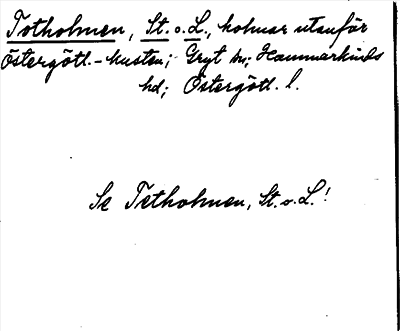 Totholmen, St. o. L., holmar utanför
Östergötl.-kusten; Gryt sn; Hammarkinds
hd; Östergötl. l.
Se Tetholmen, St. o. L.!